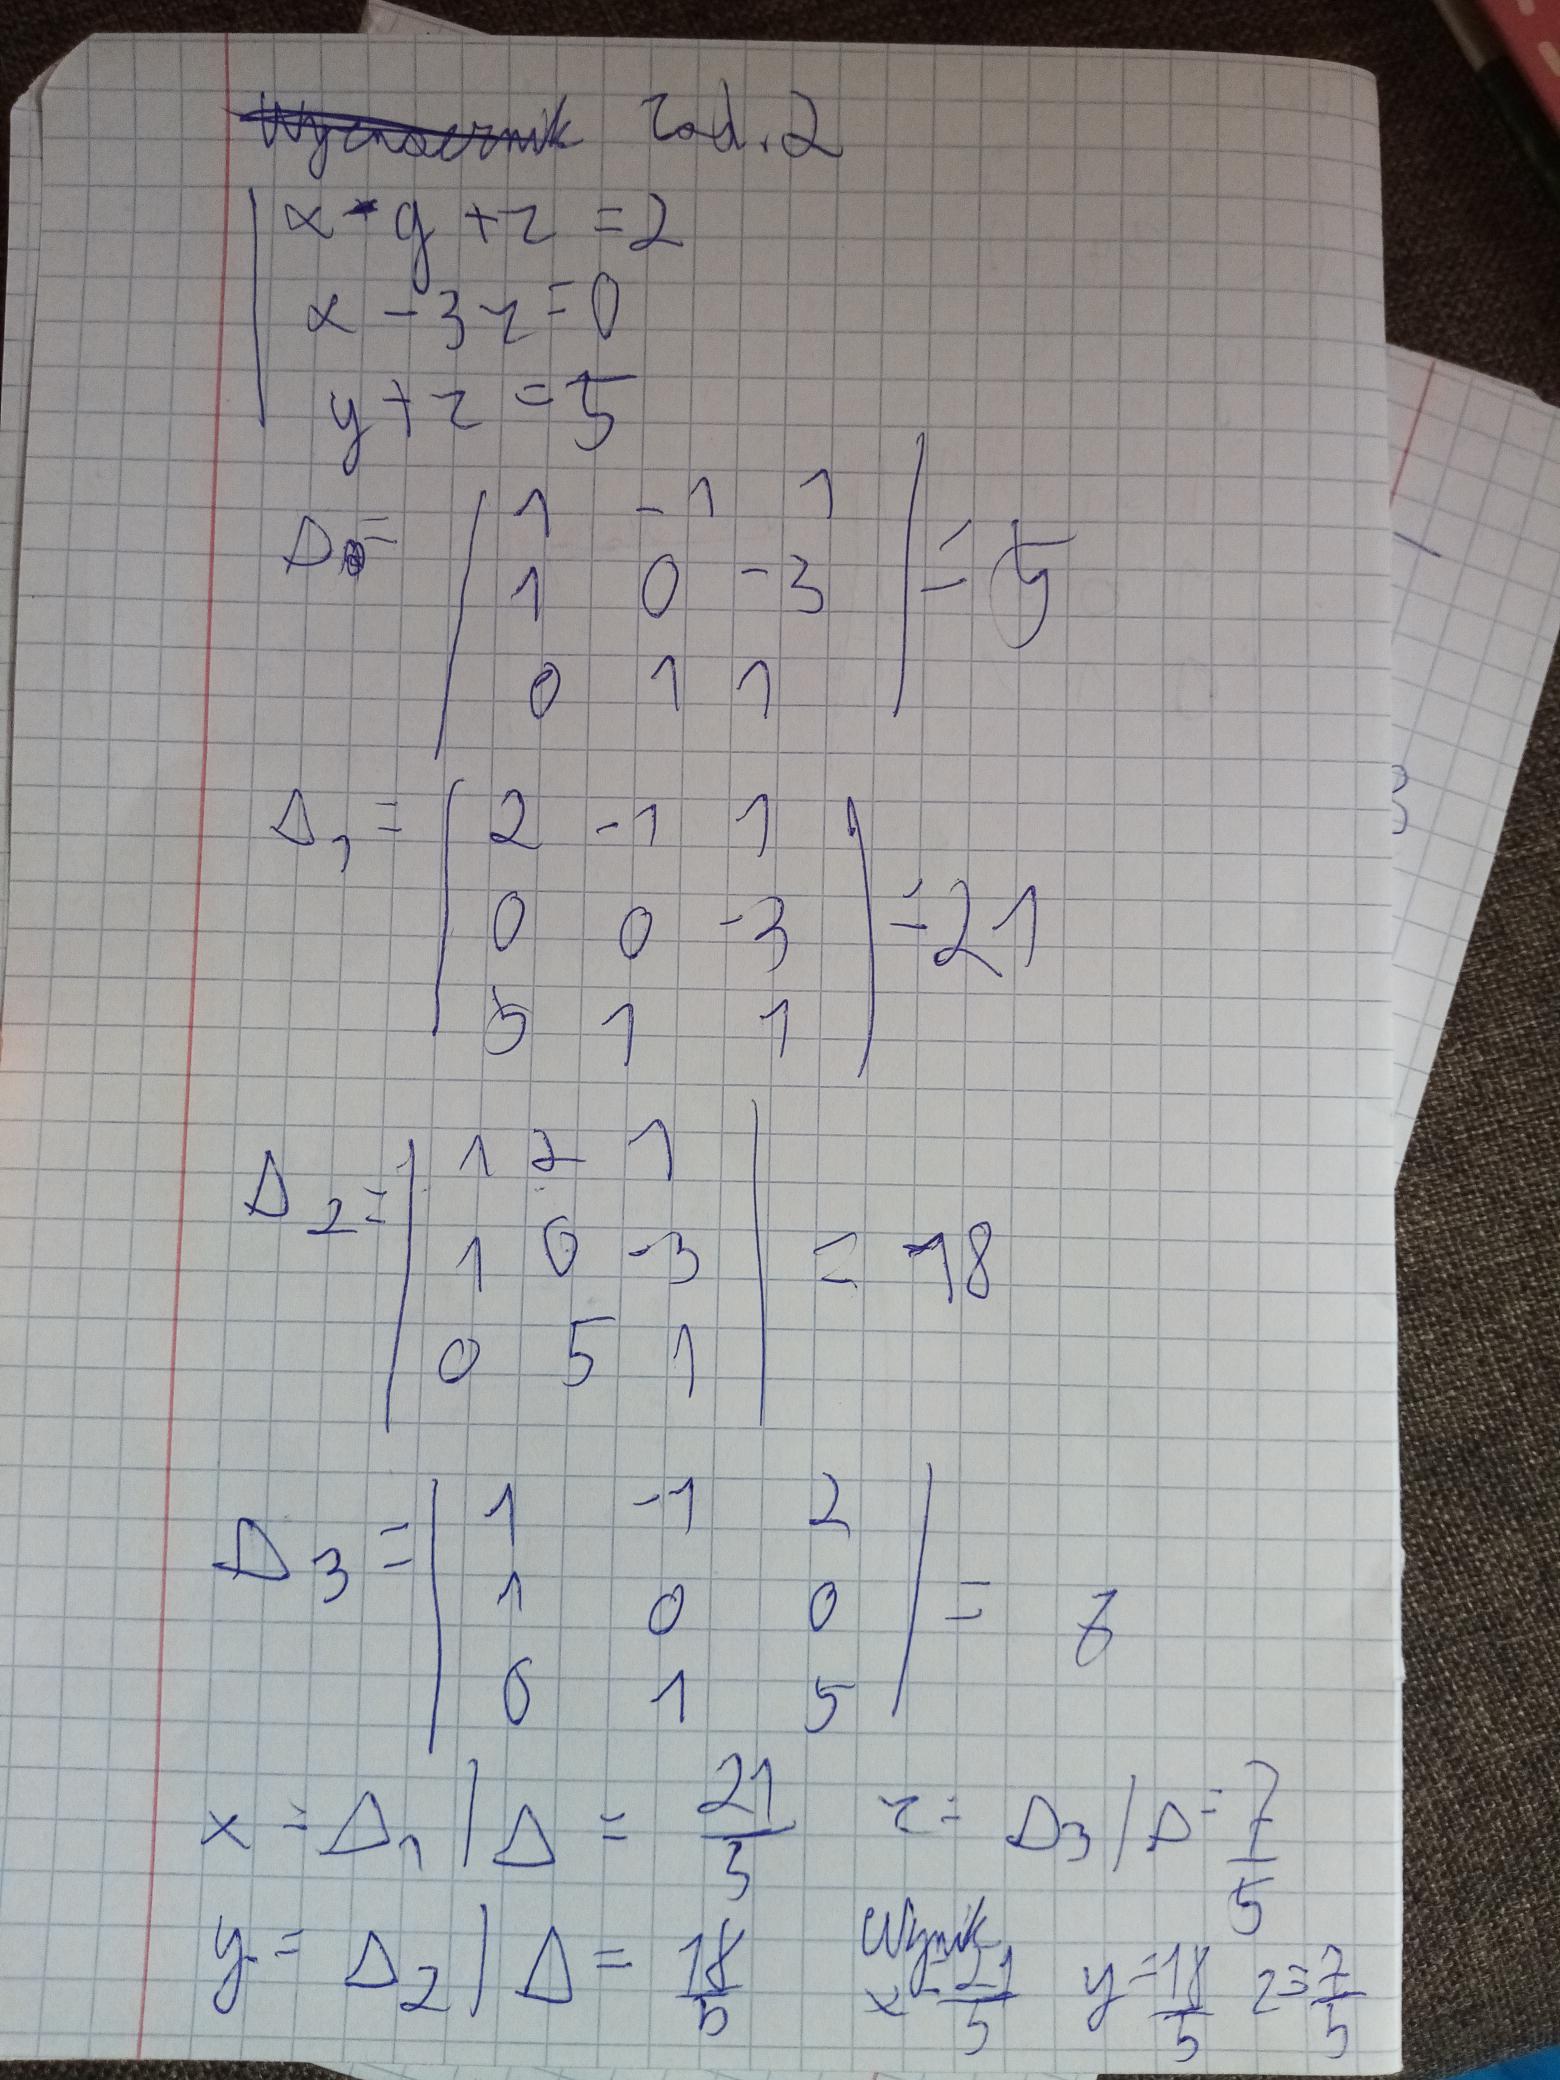 Zad. 2
x - y + z = 2
x - 3z = 0
y + z = 5
Δ = | 1 -1 1 | = 5
1 0 -3
0 1 1
Δ1 = | 2 -1 1 | = 21
0 0 -3
5 1 1
Δ2 = | 1 2 1 | = 18
1 0 -3
0 5 1
Δ3 = | 1 -1 2 | = 7
1 0 0
0 1 5
x = Δ1 / Δ = 21/5 z = Δ3 / Δ = 7/5
y = Δ2 / Δ = 18/5 Wynik
x = 21/5 y = 18/5 z = 7/5